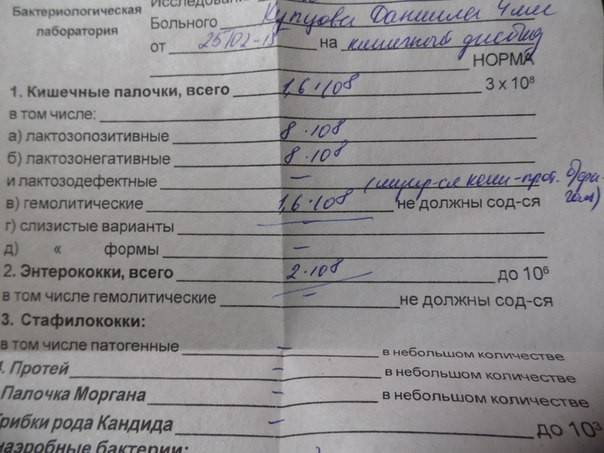 Бактериологическая
лаборатория
Исследование
Больного Купцова Даниила 4 мес
от 25/02-15 на кишечный дисбиоз
НОРМА
1. Кишечные палочки, всего 1,6·10⁸ 3 х 10⁸
в том числе:
а) лактозопозитивные 8·10⁸
б) лактозонегативные 8·10⁸
и лактозодефектные –
в) гемолитические 1,6·10⁸ не должны сод-ся
г) слизистые варианты
д) « формы –
2. Энтерококки, всего 2·10⁸ до 10⁶
в том числе гемолитические – не должны сод-ся
3. Стафилококки:
в том числе патогенные – в небольшом количестве
4. Протей – в небольшом количестве
Палочка Моргана – в небольшом количестве
Грибки рода Кандида – до 10³
наэробные бактерии: